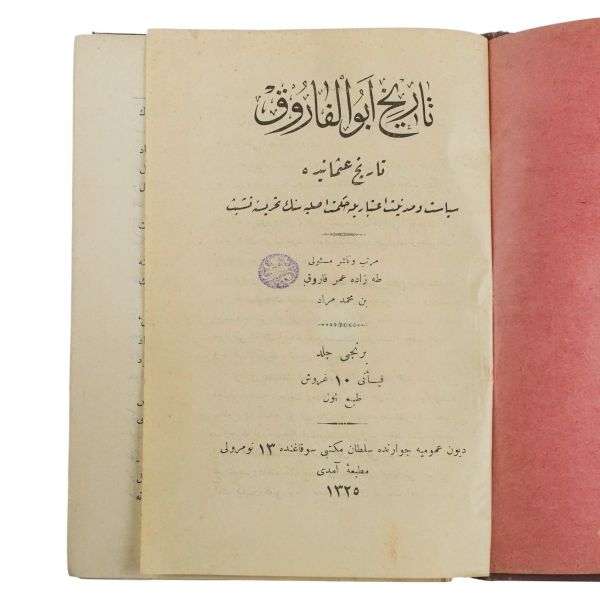 تاريخ ابوالفاروق
تاريخ عثمانيده
سياست و مدنيت اعتباريله حكمت اصليه سنك تحريسنه تشبث
مرتب و ناشر مسئولى
طه زاده عمر فاروق
بن محمد مراد
برنجى جلد
فيئاتى ١٠ غروش
طبع اون
ديون عموميه جوارنده سلطان مكتبى سوقاغنده ١٣ نومرولى
مطبعۀ آمدى
١٣٢٥